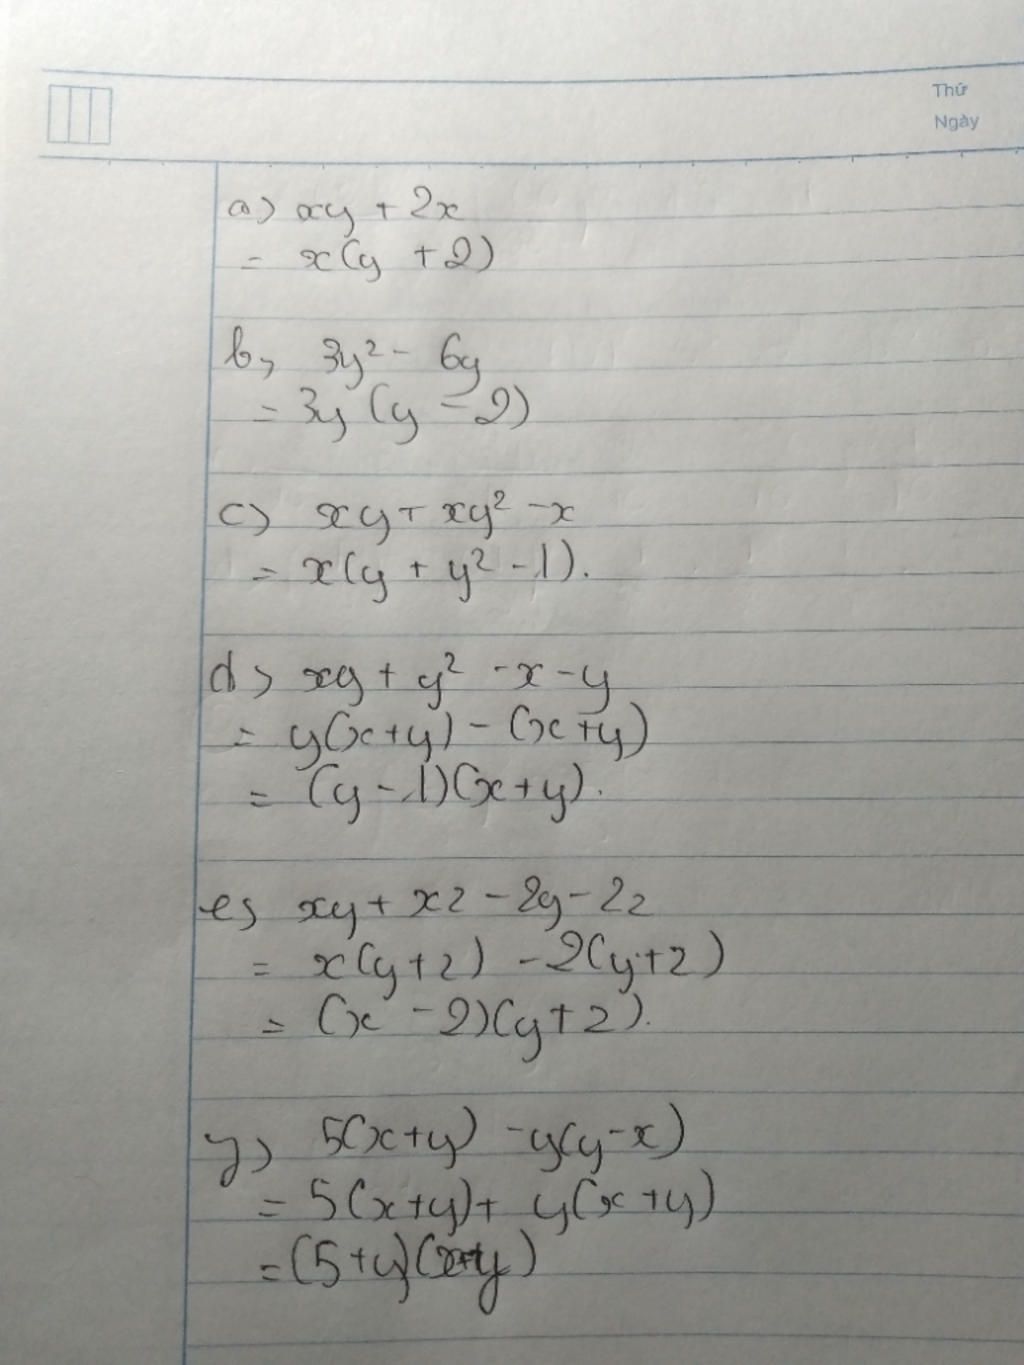 Thứ
Ngày
a) xy + 2x
= x(y + 2)
b, 3y² - 6y
= 3y (y - 2)
c) xy + xy² - x
= x(y + y² - 1).
d) xy + y² - x - y
= y(x+y) - (x+y)
= (y - 1)(x+y).
e, xy + xz - 2y - 2z
= x(y+z) - 2(y+z)
= (x - 2)(y+z).
y) 5(x+y) - y(y-x)
= 5(x+y) + y(x+y)
= (5+y)(x+y)